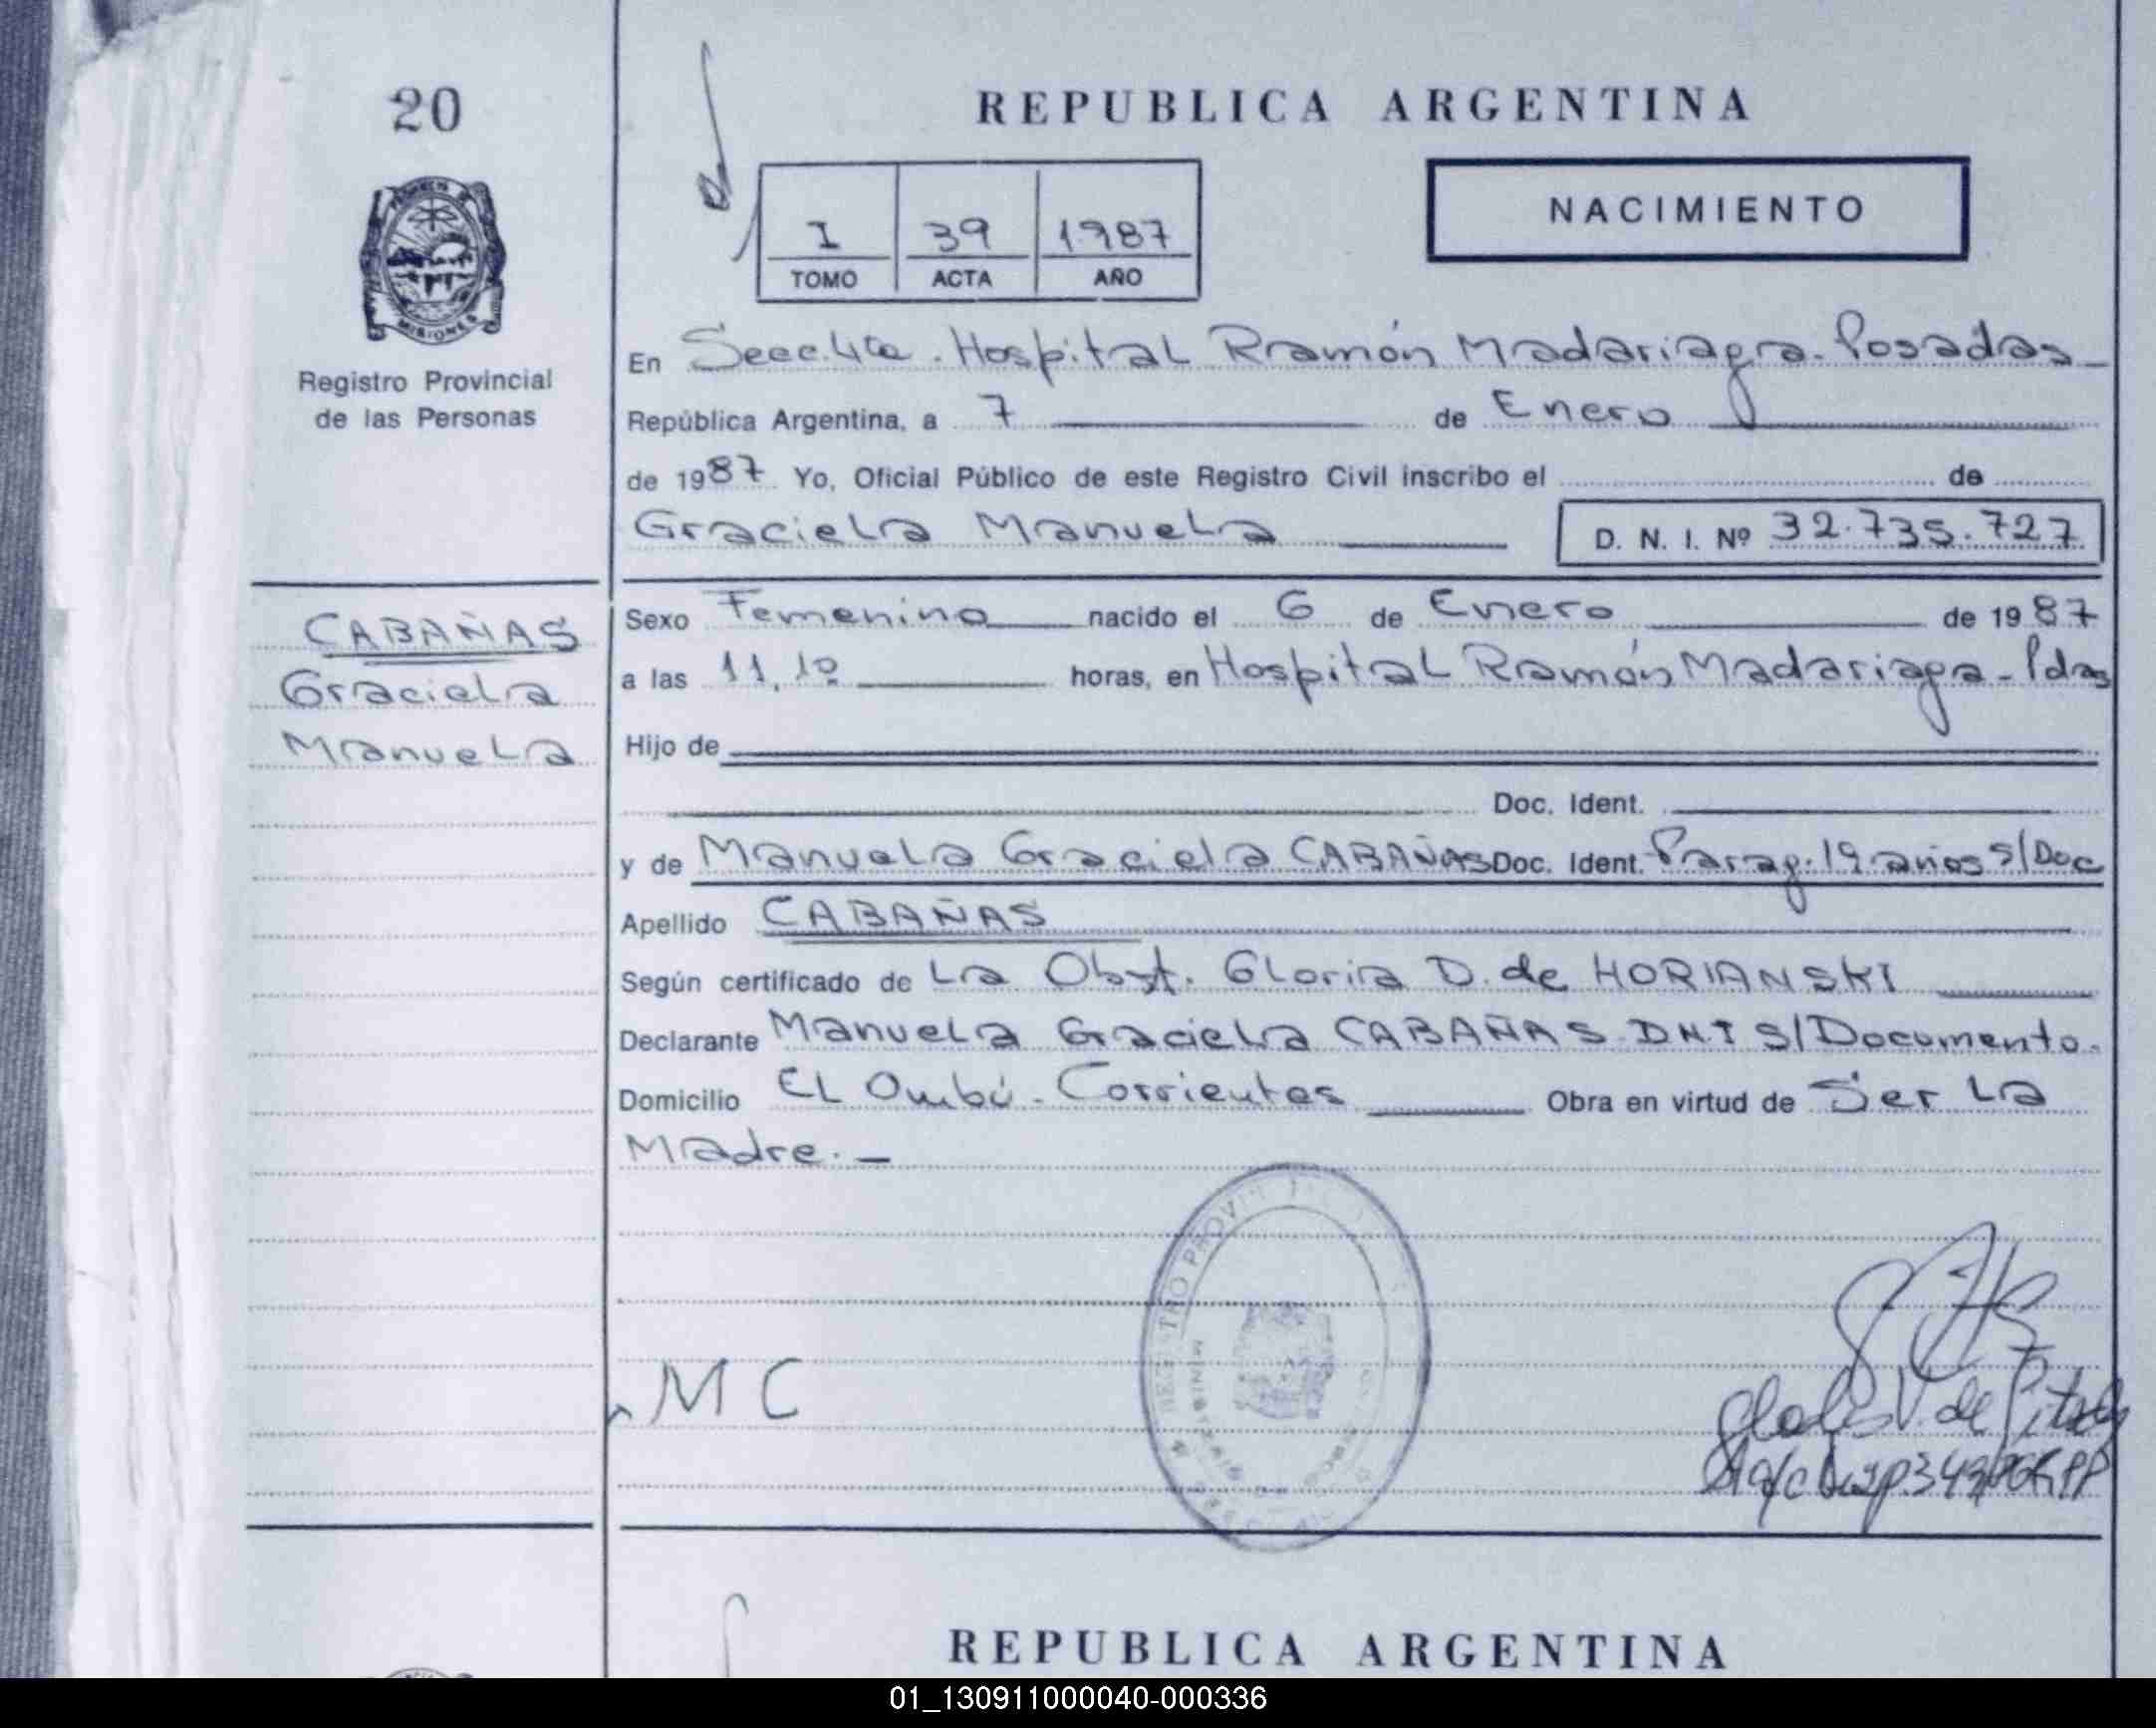 20
MISIONES
Registro Provincial
de las Personas
CABAÑAS
Graciela
Manuela
REPUBLICA ARGENTINA
I 39 1987
TOMO ACTA AÑO
NACIMIENTO
En Secc. 4ta. Hospital Ramón Madariaga. Posadas
República Argentina, a 7 de Enero
de 1987 Yo, Oficial Público de este Registro Civil inscribo el de
Graciela Manuela D. N. I. Nº 32.735.727
Sexo Femenino nacido el 6 de Enero de 1987
a las 11,10 horas, en Hospital Ramón Madariaga - Pdas
Hijo de
Doc. Ident.
y de Manuela Graciela CABAÑAS Doc. Ident. Parag. 19 años s/Doc
Apellido CABAÑAS
Según certificado de La Obst. Gloria D. de HORIANSKI
Declarante Manuela Graciela CABAÑAS DNI S/Documento.
Domicilio EL Ombú - Corrientes Obra en virtud de Ser La
Madre. -
MINISTERIO DE
M C
V. de
REPUBLICA ARGENTINA
01_130911000040-000336